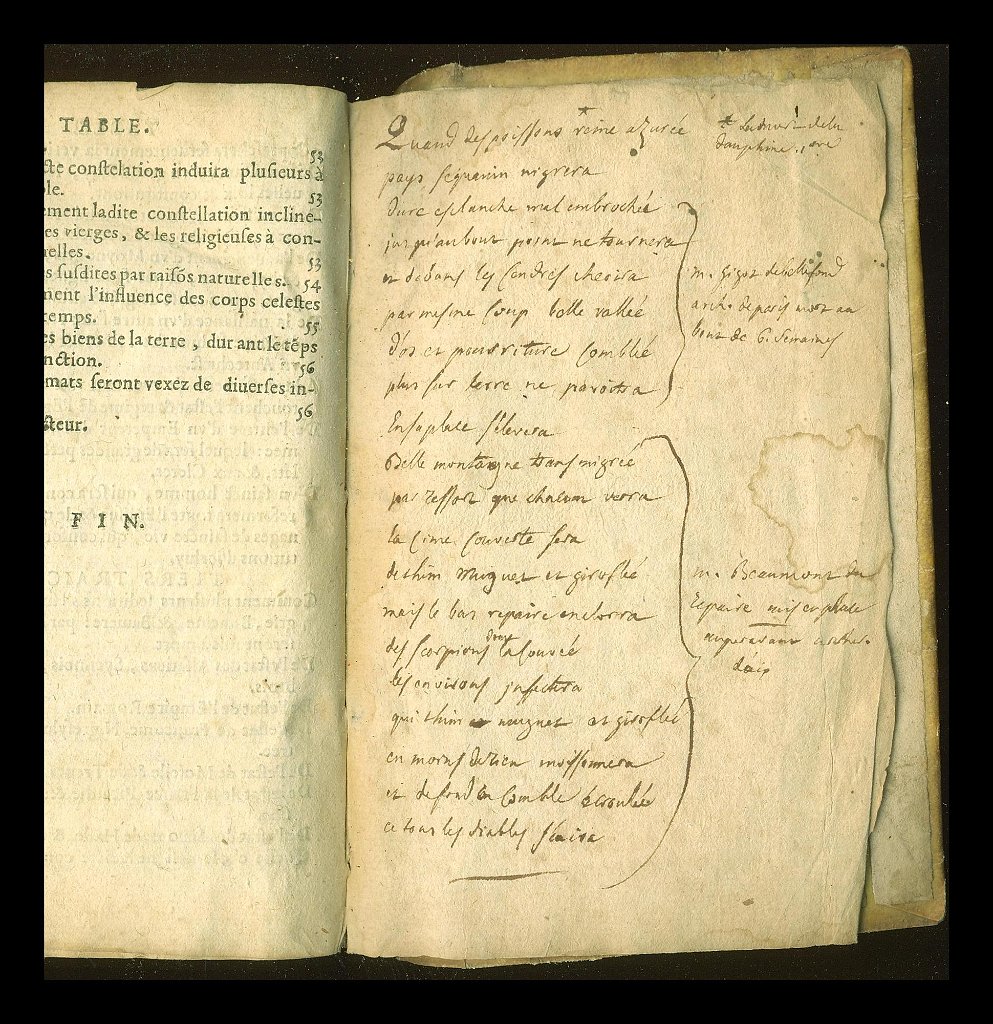 TABLE.
53
cte constelation induira plusieurs à
ble.
53
ement ladite constellation incline-
es vierges, & les religieuses à con-
nelles.
53
s susdites par raisós naturelles. 54
nent l'influence des corps celestes
temps.
55
es biens de la terre, durant le téps
nction.
56
mats seront vexez de diuerses in-
56
cteur.
FIN.
Quand des poissons reine azurée
pays sequanin migrera
dure esclanche mal embrochée
jusqu'au bout point ne tournera
et dedans les cendres cheoira
par mesme coup belle vallée
d'os et pourriture comblée
plus sur terre ne paroitra
En sa place s'elevera
Belle montaigne transmigrée
par ressort que chacun verra
la cime couverte sera
de thim muguet et giroflée
mais le bas repaire enclorra
des scorpions dont la
les environs infectera
qui thim muguet et giroflée
en moins de rien moissonnera
et de fond en comble écroulée
a tous les diables s'en ira
* de la
dauphine
m. gigot de bellefond
arch. de paris mort au
bout de 6. semaines
m. Beaumont du
repaire mis en place
auparavant